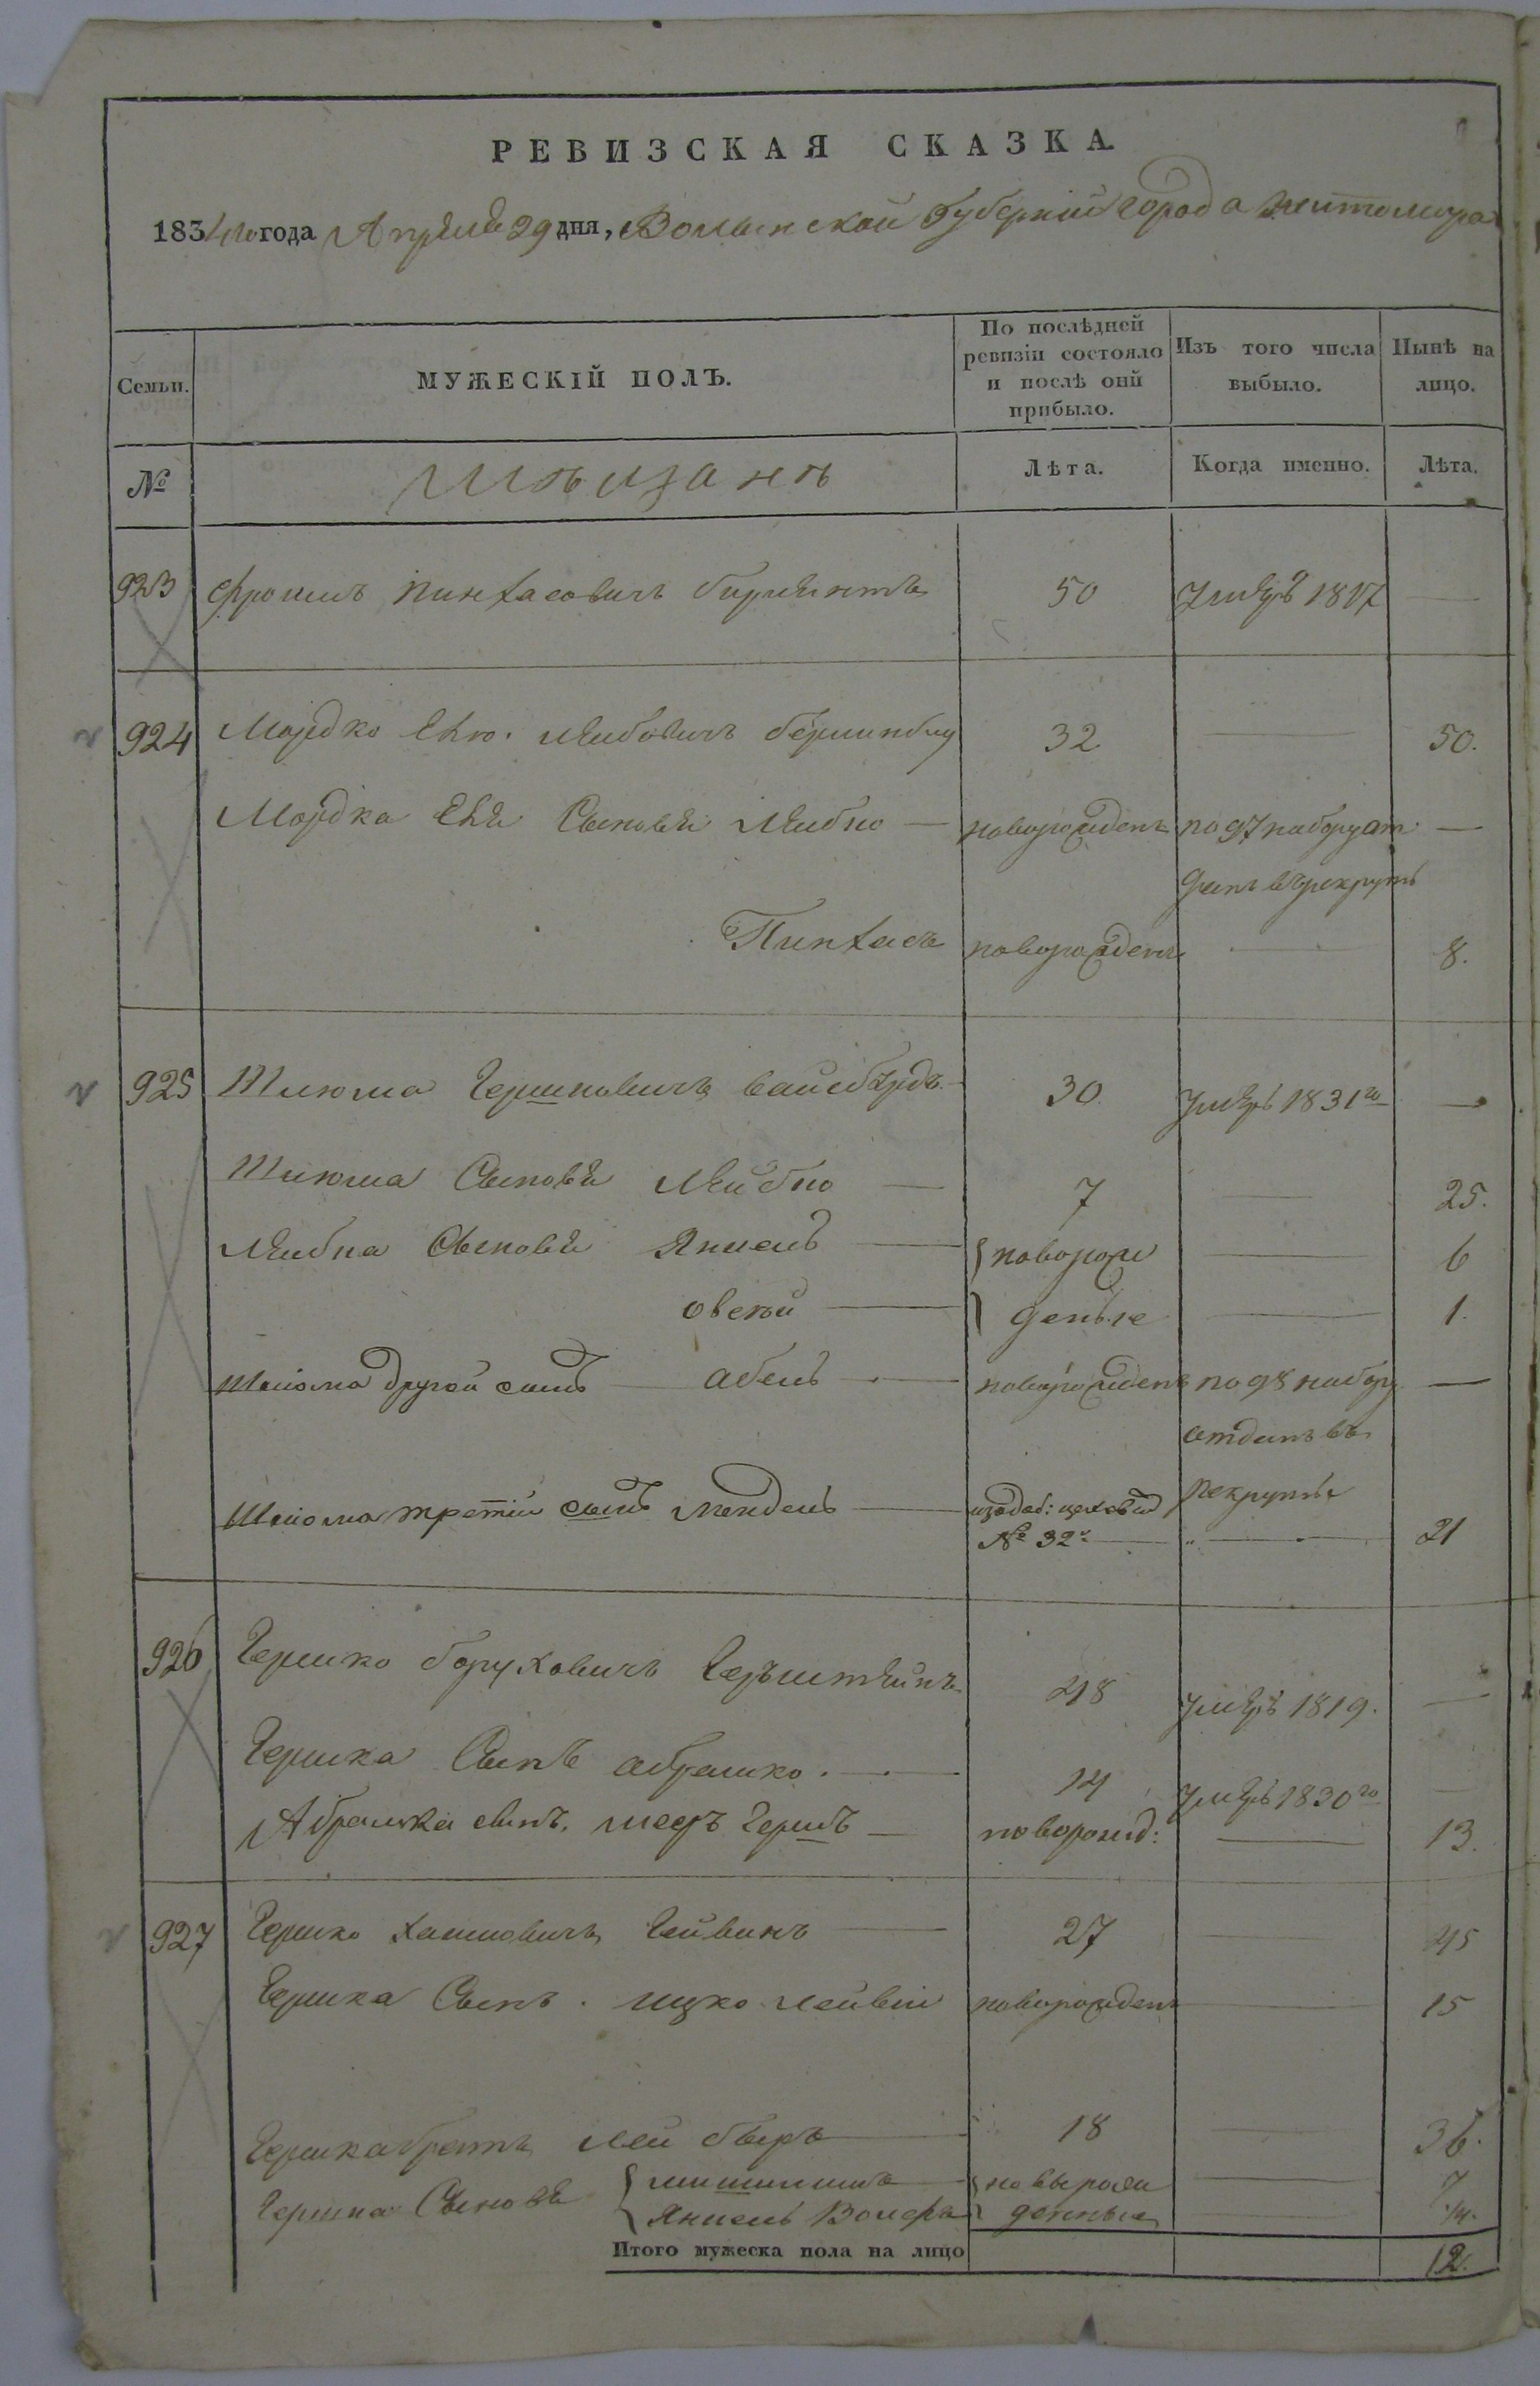 РЕВИЗСКАЯ СКАЗКА.
1834го года Апреля 29 дня, Волынской Губернии города Житомира
Семьи.
МУЖЕСКІЙ ПОЛЪ.
По послѣдней ревизіи состояло и послѣ оной прибыло.
Изъ того числа выбыло.
Нынѣ на лицо.
№
Мѣщанъ
Лѣта.
Когда именно.
Лѣта.
923 Фроимъ Пинхасовичъ 50 Умеръ 1817 —
924 Мордко Ехю. Лейбовичъ 32 — 50.
Мордка Ехи Сыновья Лейбко — новорожденъ по 97 набору от —
данъ въ рекруты
Пинхасъ новорожденъ — 8.
925 Шлюма Гершковичъ Вайсбурдъ 30. Умеръ 1831го —
Шлюма Сыновья Лейбко — 7 — 25.
Лейбка Сыновья Янкель — новорож — 6
овсей — денные — 1.
Шлиома другой сынъ — абель — новорожденъ по 98 набору —
отданъ въ
рекруты
Шлиома третій сынъ мендель —
№ 32 — 21
926 Гершко Боруховичъ Герштейнъ 48 Умеръ 1819. —
Гершка Сынъ абрамко. — 14 Умеръ 1830го —
Абрамка сынъ. мееръ Гершъ — новорожд: — 13.
927 Гершко Хаимовичъ Гейвинъ — 27 — 45
Гершка Сынъ. ицко лейвій новорожденъ — 15
Гершка братъ Лей беръ — 18 — 36.
Гершка Сыновья — новорож — 7
Янкель Волфъ денные — 14.
Итого мужеска пола на лицо 12.